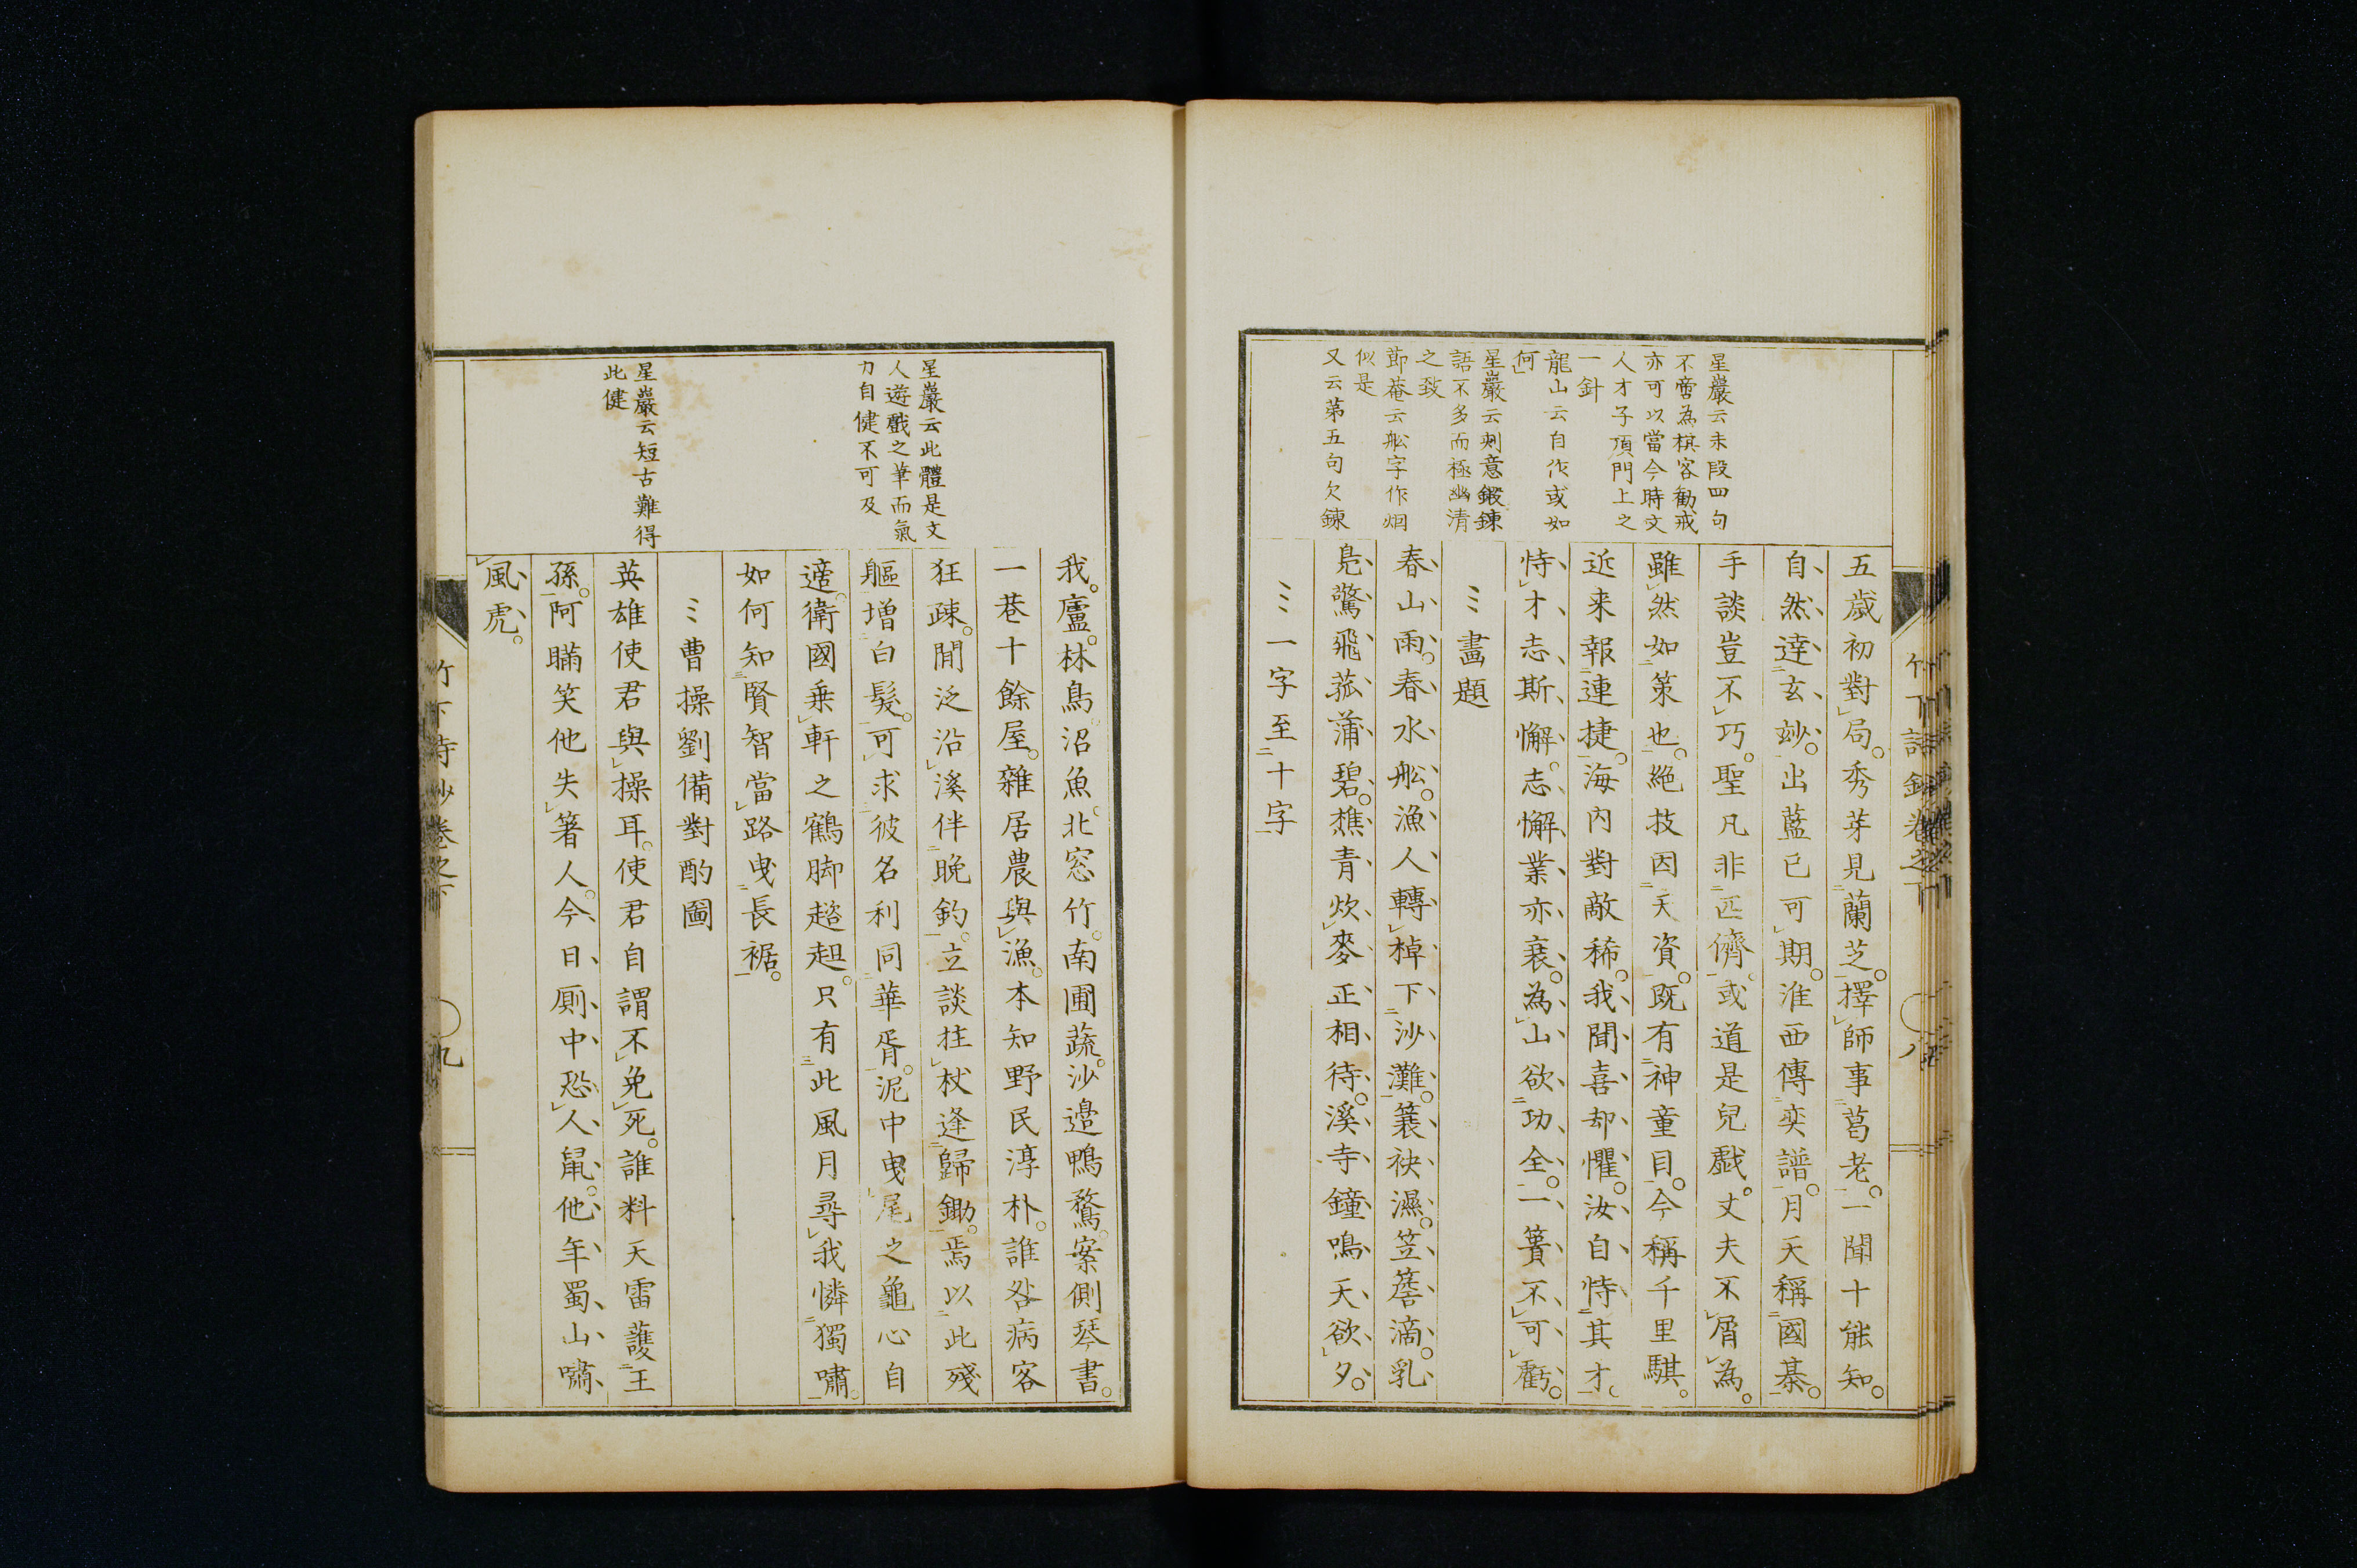 星巖云末段四句
不啻為棋客勸戒
亦可以當今時文
人才子頂門上之
一針
龍山云自作或如
何
星巖云刻意鍛鍊
語不多而極幽清
之致
節菴云舩字作烟
似是
又云第五句欠鍊
五歲初對局。秀芽見蘭芝。擇師事葛老。一聞十能知。
自然達玄玅。出藍已可期。淮西傳奕譜。月天稱國棊。
手談豈不巧。聖凡非匹儕。或道是兒戲。丈夫不屑為。
雖然如策也。絕技因天資。既有神童目。今稱千里騏。
近来報連捷。海内對敵稀。我聞喜却懼。汝自恃其才。
恃才志斯懈。志懈業亦衰。為山欲功全。一簣不可虧。
畫題
春山雨。春水舩。漁人轉棹下沙灘。蓑袂濕。笠簷滴。乳
鳧驚飛菰蒲碧。樵青炊麥正相待。溪寺鐘鳴天欲夕。
一字至十字
竹下詩鈔卷之下 八
星巖云此體是文
人遊戲之筆而氣
力自健不可及
星巖云短古難得
此健
我。廬。林鳥。沼魚。北窓竹。南圃蔬。沙邉鴨鶩。案側琴書。
一巷十餘屋。雜居農與漁。本知野民淳朴。誰咎病客
狂疎。閒泛沿溪伴晩釣。立談拄杖逢歸鋤。焉以此殘
軀增白髮。可求彼名利同華胥。泥中曳尾之龜心自
適。衛國乗軒之鶴脚趦趄。只有此風月尋我憐獨嘯。
如何知賢智當路曳長裾。
曹操劉備對酌圖
英雄使君與操耳。使君自謂不免死。誰料天雷護王
孫。阿瞞笑他失箸人。今日厠中恐人鼠。他年蜀山嘯
風虎。
竹下詩鈔卷之下 九